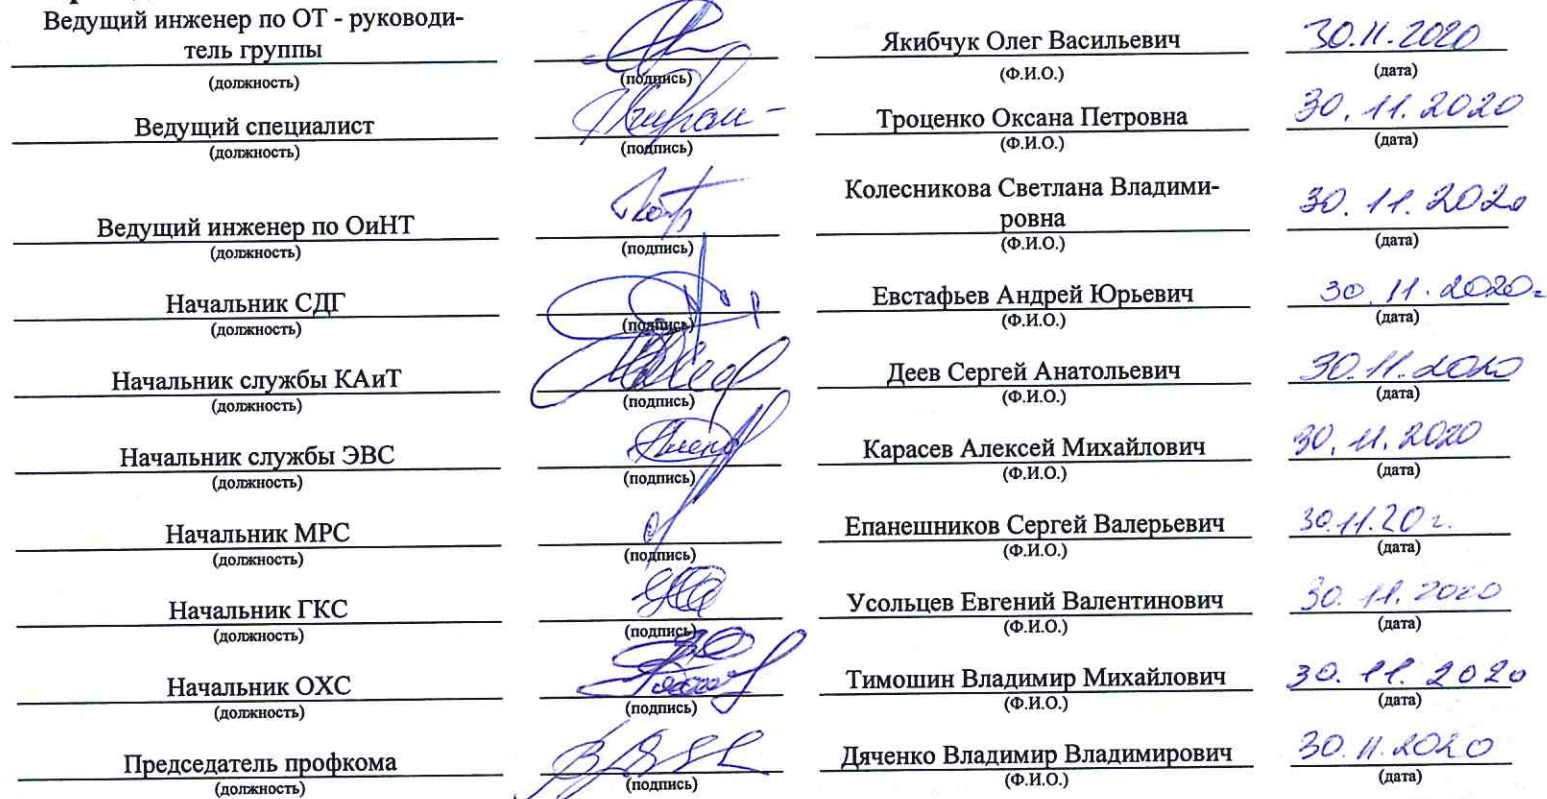 Ведущий инженер по ОТ - руководи-
тель группы Якибчук Олег Васильевич 30.11.2020
(должность) (подпись) (Ф.И.О.) (дата)
Ведущий специалист Троценко Оксана Петровна 30.11.2020
(должность) (подпись) (Ф.И.О.) (дата)
Колесникова Светлана Владими-
Ведущий инженер по ОиНТ ровна 30.11.2020
(должность) (подпись) (Ф.И.О.) (дата)
Начальник СДГ Евстафьев Андрей Юрьевич 30.11.2020г
(должность) (подпись) (Ф.И.О.) (дата)
Начальник службы КАиТ Деев Сергей Анатольевич 30.11.2020
(должность) (подпись) (Ф.И.О.) (дата)
Начальник службы ЭВС Карасев Алексей Михайлович 30.11.2020
(должность) (подпись) (Ф.И.О.) (дата)
Начальник МРС Епанешников Сергей Валерьевич 30.11.20 г.
(должность) (подпись) (Ф.И.О.) (дата)
Начальник ГКС Усольцев Евгений Валентинович 30.11.2020
(должность) (подпись) (Ф.И.О.) (дата)
Начальник ОХС Тимошин Владимир Михайлович 30.11.2020
(должность) (подпись) (Ф.И.О.) (дата)
Председатель профкома Дяченко Владимир Владимирович 30.11.2020
(должность) (подпись) (Ф.И.О.) (дата)